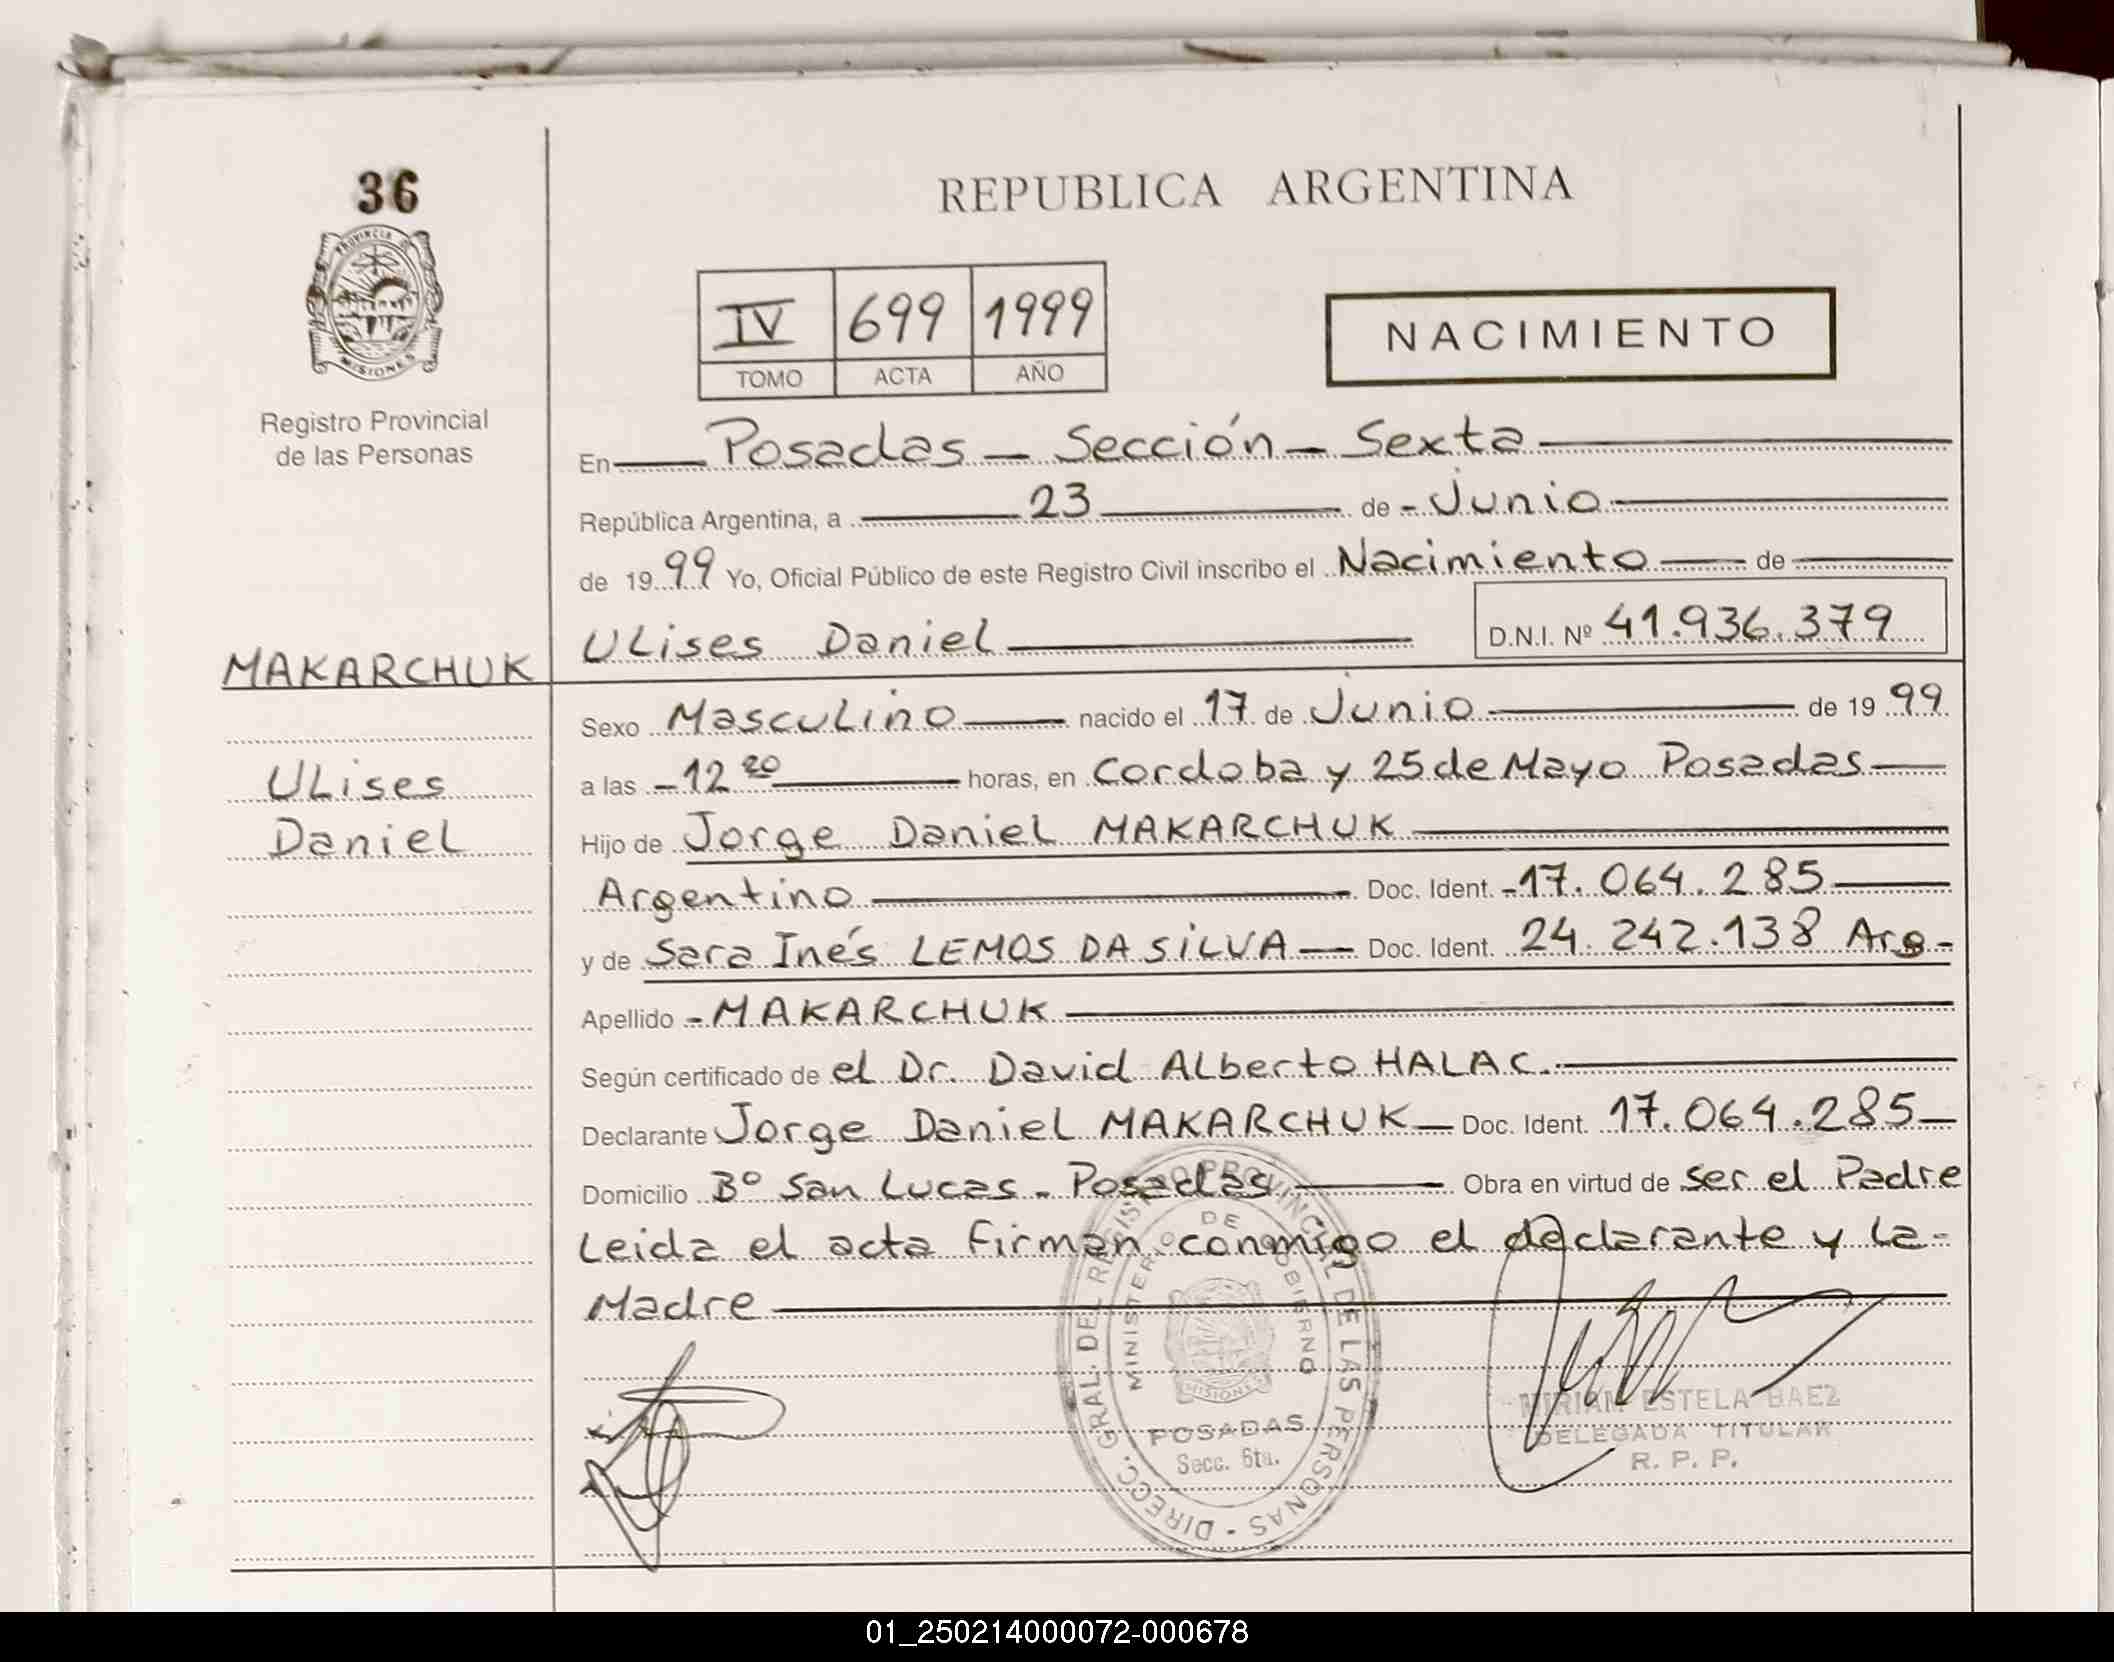 36
PROVINCIA D
MISIONES
Registro Provincial
de las Personas
REPUBLICA ARGENTINA
IV 699 1999
TOMO ACTA AÑO
NACIMIENTO
En Posadas - Sección - Sexta
República Argentina, a 23 de - Junio
de 1999 Yo, Oficial Público de este Registro Civil inscribo el Nacimiento de
ULises Daniel D.N.I. Nº 41.936.379
MAKARCHUK
ULises
Daniel
Sexo Masculino nacido el 17 de Junio de 1999
a las - 12 20 horas, en Cordoba y 25 de Mayo Posadas
Hijo de Jorge Daniel MAKARCHUK
Argentino Doc. Ident. - 17.064.285
y de Sara Inés LEMOS DA SILVA Doc. Ident. 24.242.138 Arg-
Apellido - MAKARCHUK
Según certificado de el Dr. David ALberto HALAC.
Declarante Jorge Daniel MAKARCHUK Doc. Ident. 17.064.285
Domicilio Bº San Lucas - Posadas Obra en virtud de ser el Padre
Leida el acta firman conmigo el declarante y la-
Madre
DIRECC. GRAL. DEL REGISTRO PROVINCIAL DE LAS PERSONAS -
MINISTERIO DE GOBIERNO
MISIONES
POSADAS
Secc. 6ta.
MIRIAM ESTELA BAEZ
DELEGADA TITULAR
R. P. P.
01_250214000072-000678